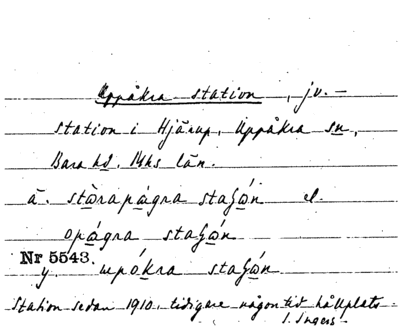 Uppåkra station, jv.-
station i Hjärup, Uppåkra sn,
Bara hd. Mhs län.
ä. stòrapágra staʃón el.
opágra staʃón
Nr 5543.
y. upókra staʃón
Station sedan 1910. tidigare någon tid hållplats
I. Ingers